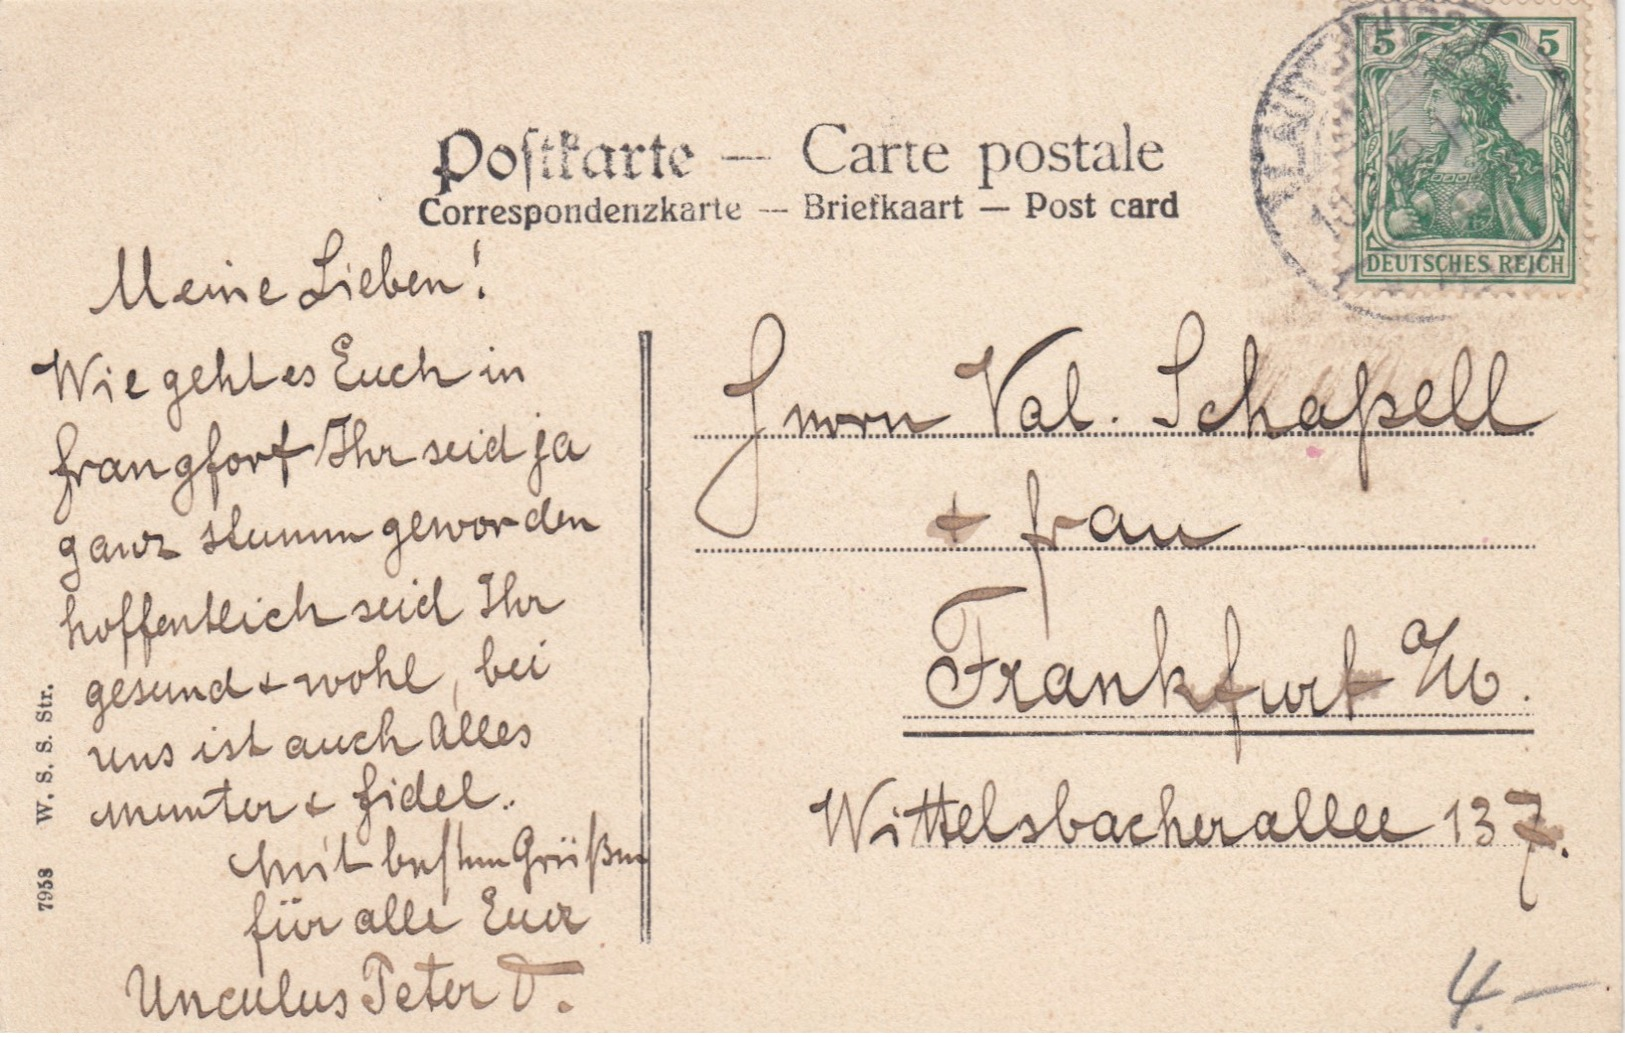 Postkarte — Carte postale
Correspondenzkarte — Briefkaart — Post card
5 5
DEUTSCHES REICH
Meine Lieben!
Wie geht es Euch in
Frangfort Ihr seid ja
ganz stumm geworden
hoffentlich seid Ihr
gesund & wohl, bei
uns ist auch Alles
munter & fidel.
Mit besten Grüßen
für alle Euer
Unculus Peter V.
Herrn Val. Schapell
& Frau
Frankfurt a/M.
Wittelsbacherallee 137.
7958 W. S. S. Str.
4.—